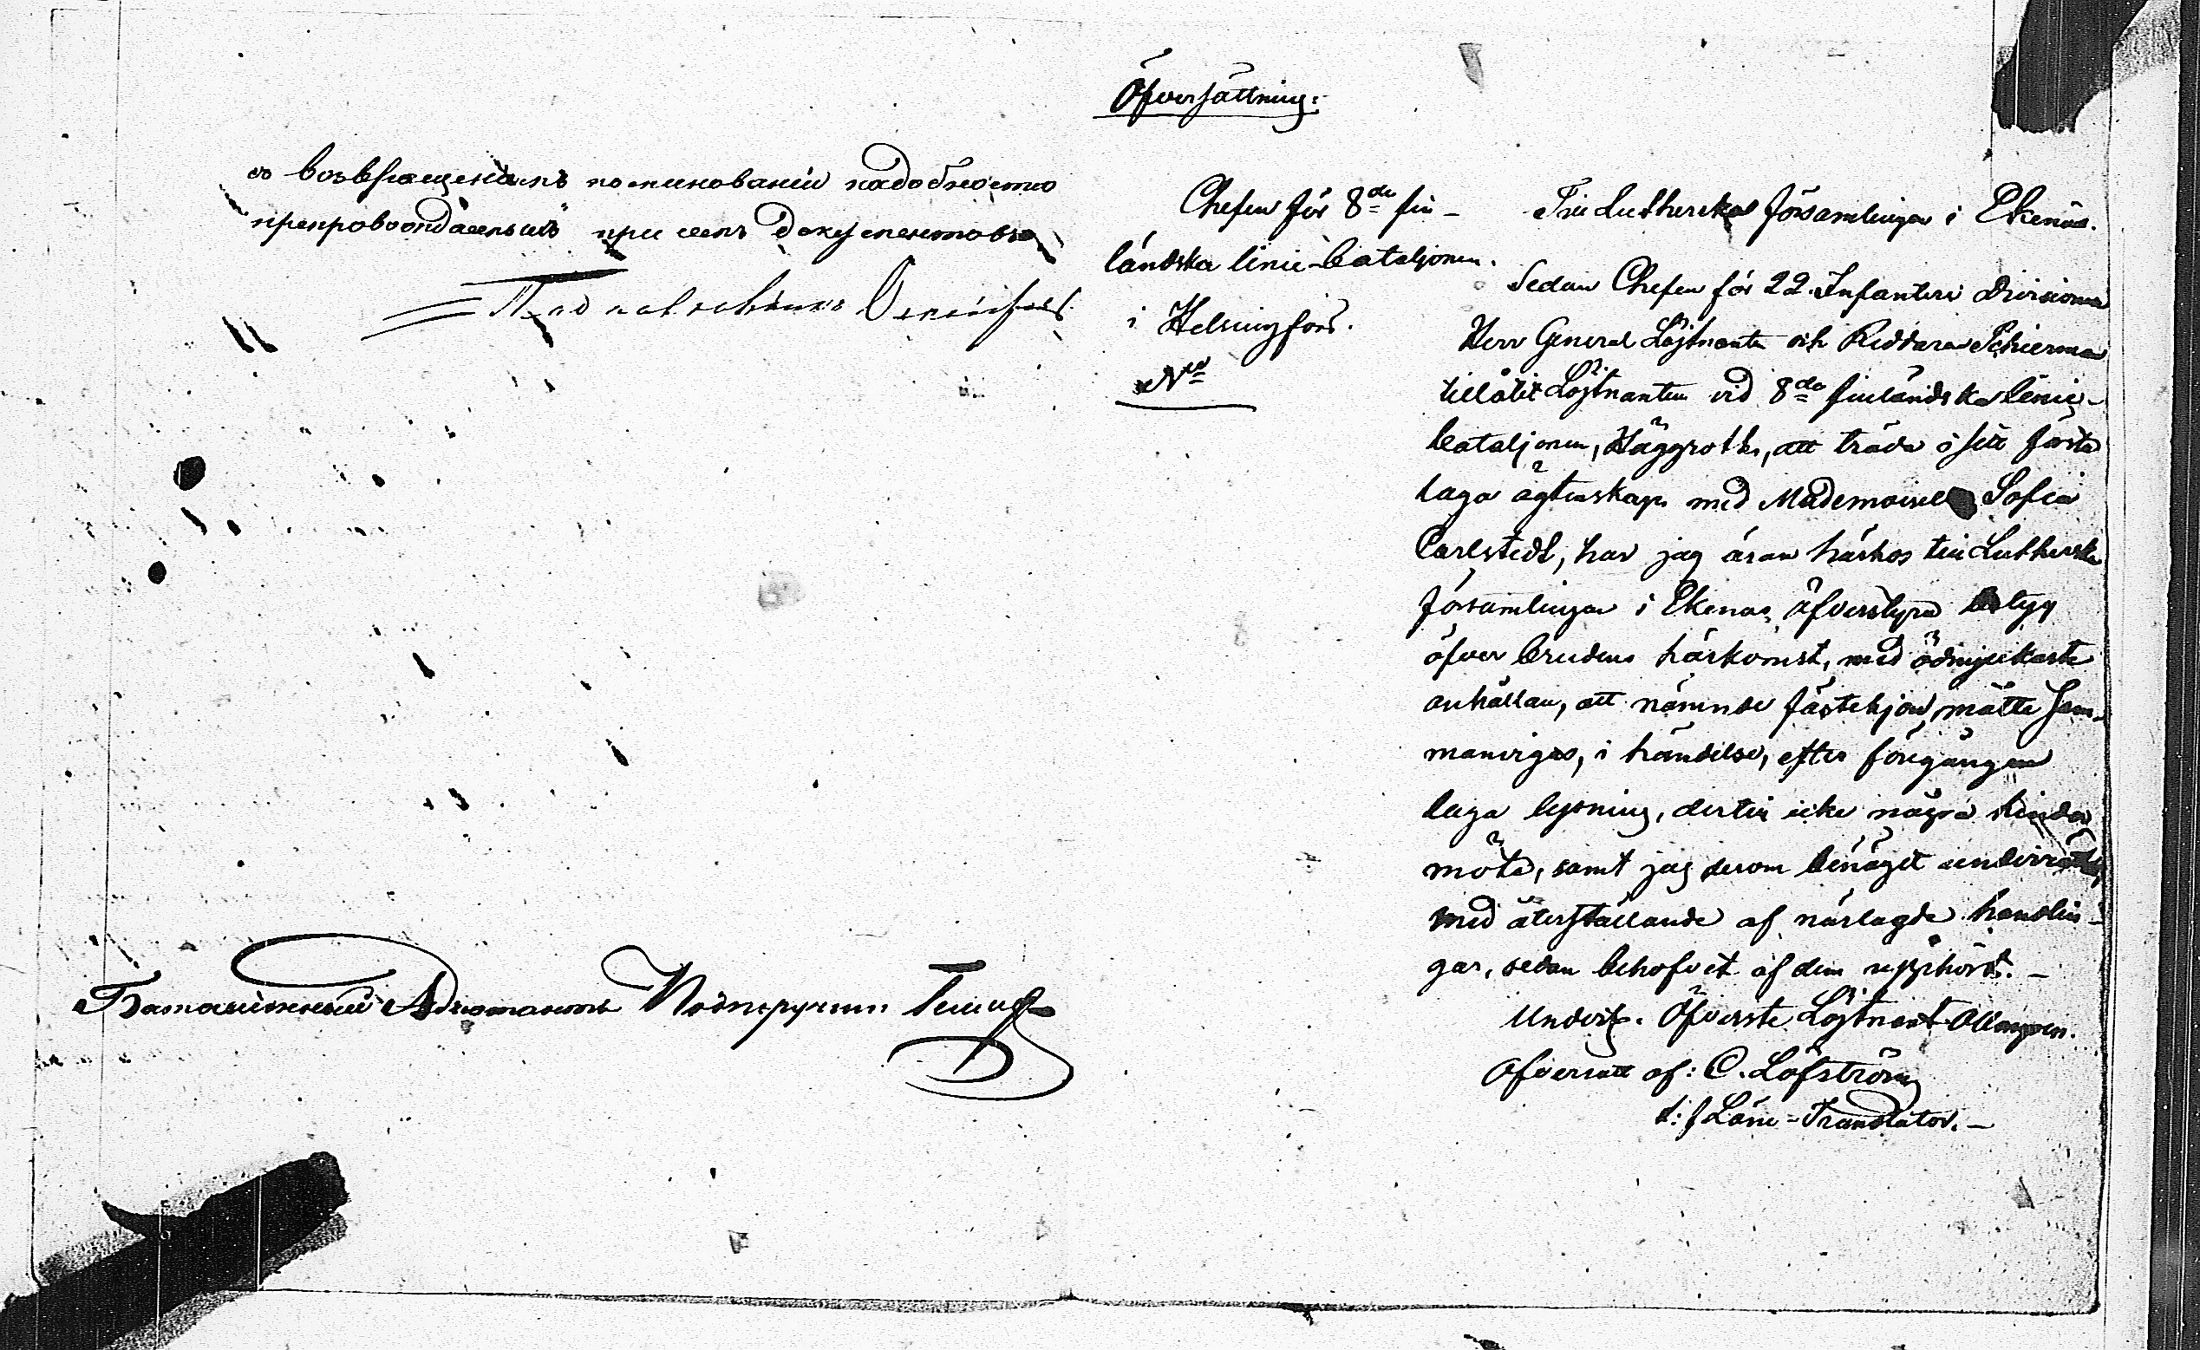 съ возвращеніемъ по минованіи надобности
препровождаемыхъ при семъ документовъ
Подполковникъ
Баталіонный Адъютантъ Подпоручик
Öfversättning:
Chefen för 8de fin-
ländska linie-bataljonen.
i Helsingfors.
No
Till Lutherska församlingen i Ekenäs.
Sedan Chefen för 22. Infanteri Divisionen
Herr General Löjtnanten och Riddaren Schierman
tillåtit Löjtnanten vid 8de finländska linie-
bataljonen, Häggroth, att träda i sitt första
laga ägtenskap med Mademoiselle Sofia
Carlstedt, har jag äran härhos till Lutherska
församlingen i Ekenäs öfverstyra betyg
öfver brudens härkomst, med ödmjukaste
anhållan, att nämnde fästehjon måtte sam-
manvigas, i händelse, efter föregången
laga lysning, dertill icke några hinder
möta, samt jag derom benäget underrättas,
med återställande af närlagde handlin-
gar, sedan behofvet af dem upphört.-
Undert. Öfverste Löjtnant
Öfversatt af: C. Löfström
t: f Läne-Translator.-